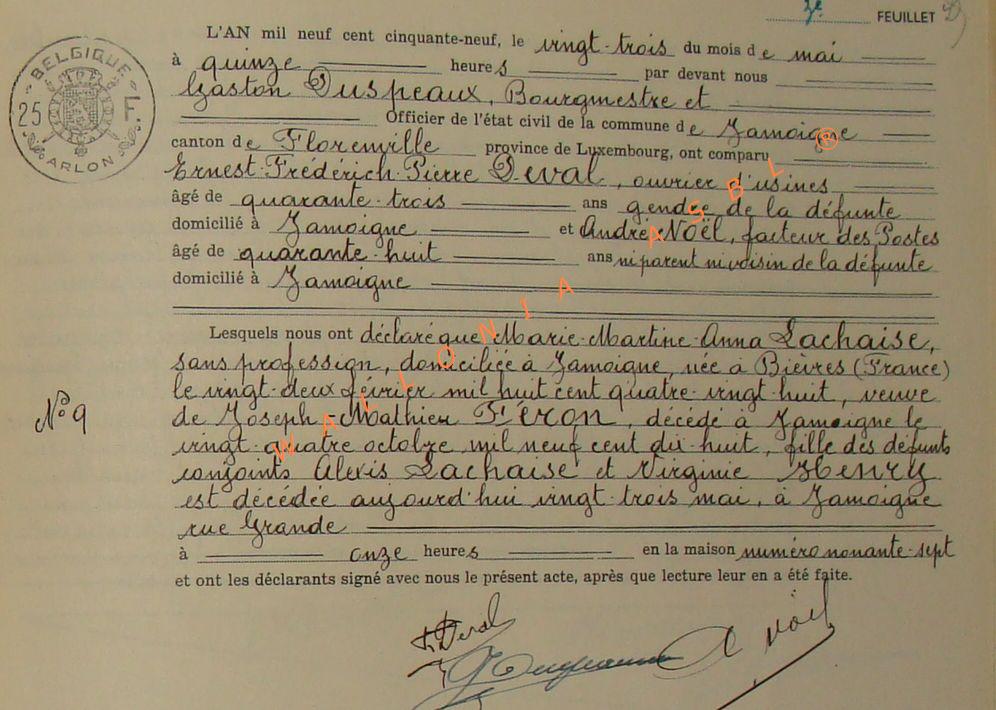 7e FEUILLET
L'AN mil neuf cent cinquante-neuf, le vingt-trois du mois de mai
à quinze heures par devant nous
Gaston Duspeaux, Bourgmestre et
Officier de l'état civil de la commune de Jamoigne
canton de Florenville province de Luxembourg, ont comparu
Ernest-Frédérich-Pierre Deval, ouvrier d'usines,
âgé de quarante-trois ans gendre de la défunte
domicilié à Jamoigne et André Noël, facteur des Postes
âgé de quarante-huit ans ni parent ni voisin de la défunte
domicilié à Jamoigne
Lesquels nous ont déclaré que Marie-Martine-Anna Lachaise,
sans profession, domiciliée à Jamoigne, née à Bièvres (France)
le vingt-deux février mil huit cent quatre-vingt-huit, veuve
de Joseph-Mathieu Féron, décédé à Jamoigne le
vingt-quatre octobre mil neuf cent dix-huit, fille des défunts
conjoints Alexis Lachaise et Virginie Henry
est décédée aujourd'hui vingt-trois mai, à Jamoigne
rue Grande
à onze heures en la maison numéro nonante-sept
et ont les déclarants signé avec nous le présent acte, après que lecture leur en a été faite.
N° 9
BELGIQUE
25 F
ARLON
Deval
A Noël
WALLONIA ASBL ®